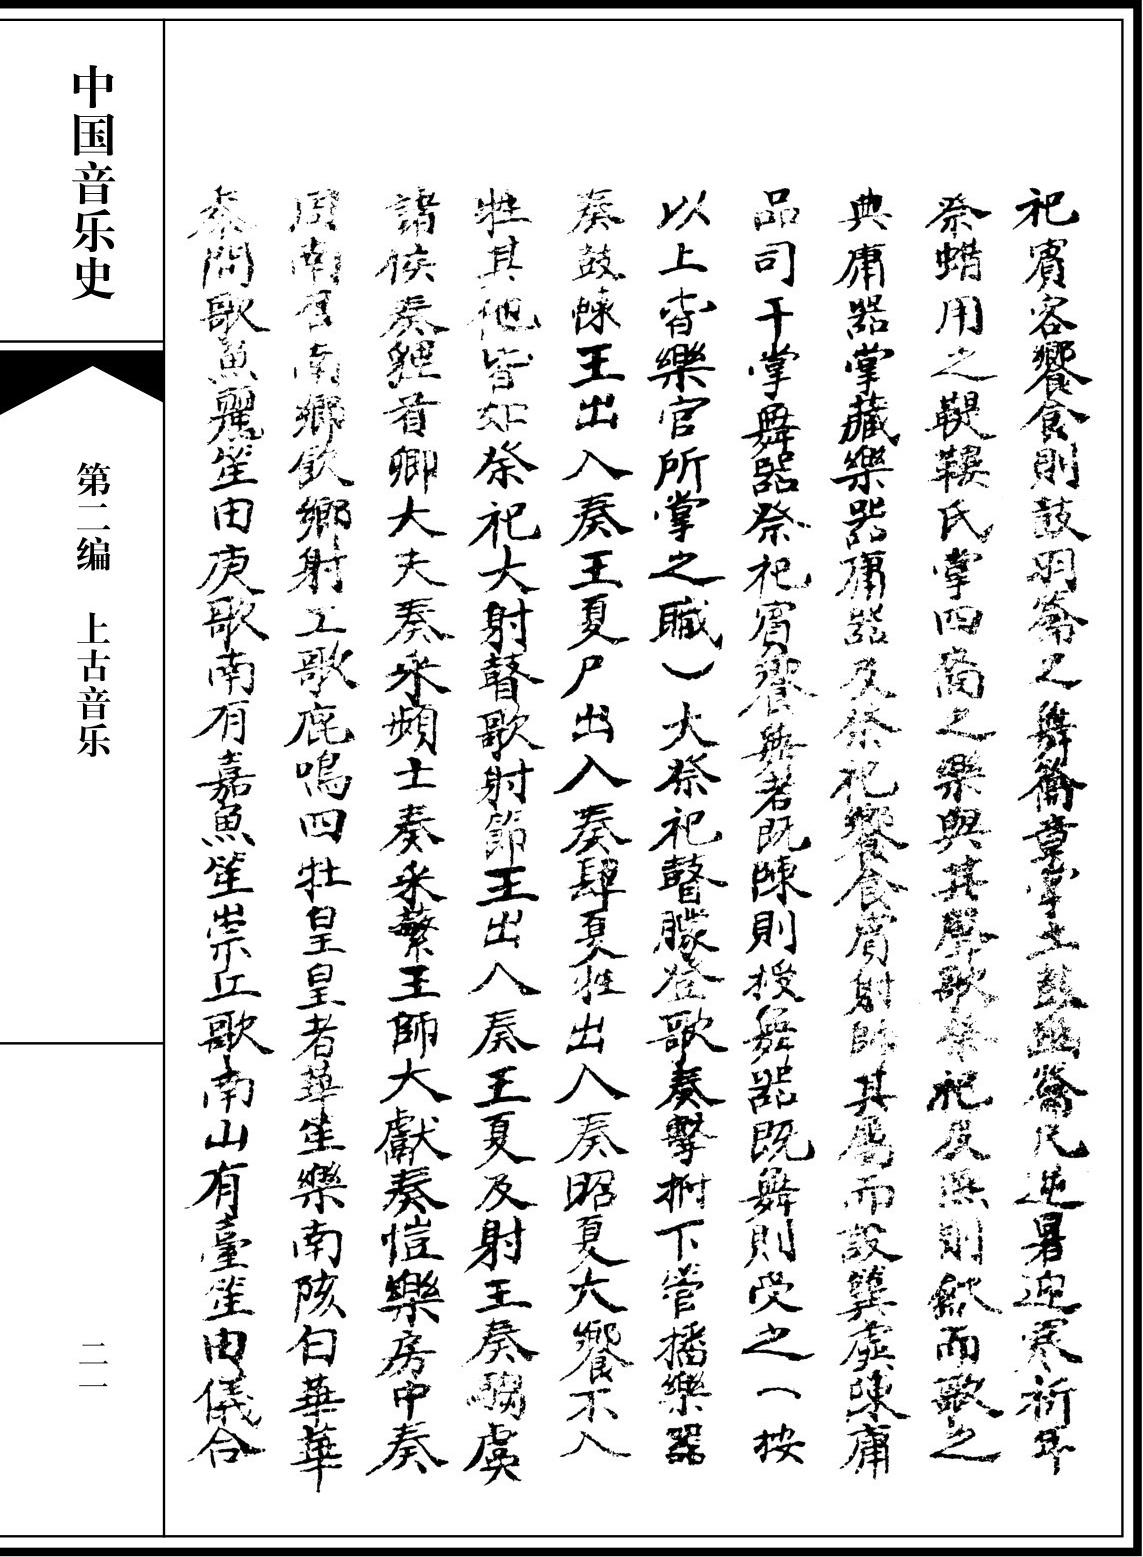 祀賓客饗食則鼓羽籥之舞籥章掌土鼓豳籥凡逆暑迎寒祈年
祭蜡用之鞮鞻氏掌四裔之樂與其聲歌祭祀及燕則龡而歌之
典庸器掌藏樂器庸器及祭祀饗食賓射帥其屬而設龔虡陳庸
品司干掌舞器祭祀賓饗舞者既陳則授舞器既舞則受之（按
以上皆樂官所掌之職）大祭祀瞽矇登歌奏擊拊下管播樂器
奏鼓朄王出入奏王夏尸出入奏肆夏牲出入奏昭夏大饗不入
牲其他皆如祭祀大射瞽歌射節王出入奏王夏及射王奏騶虞
諸侯奏貍首卿大夫奏采頻士奏采蘩王師大獻奏愷樂房中奏
周南召南鄉飲鄉射工歌鹿鳴四牡皇皇者華笙樂南陔白華華
黍間歌魚麗笙由庚歌南有嘉魚笙崇丘歌南山有臺笙由儀合
中国音乐史
第二编 上古音乐
二一